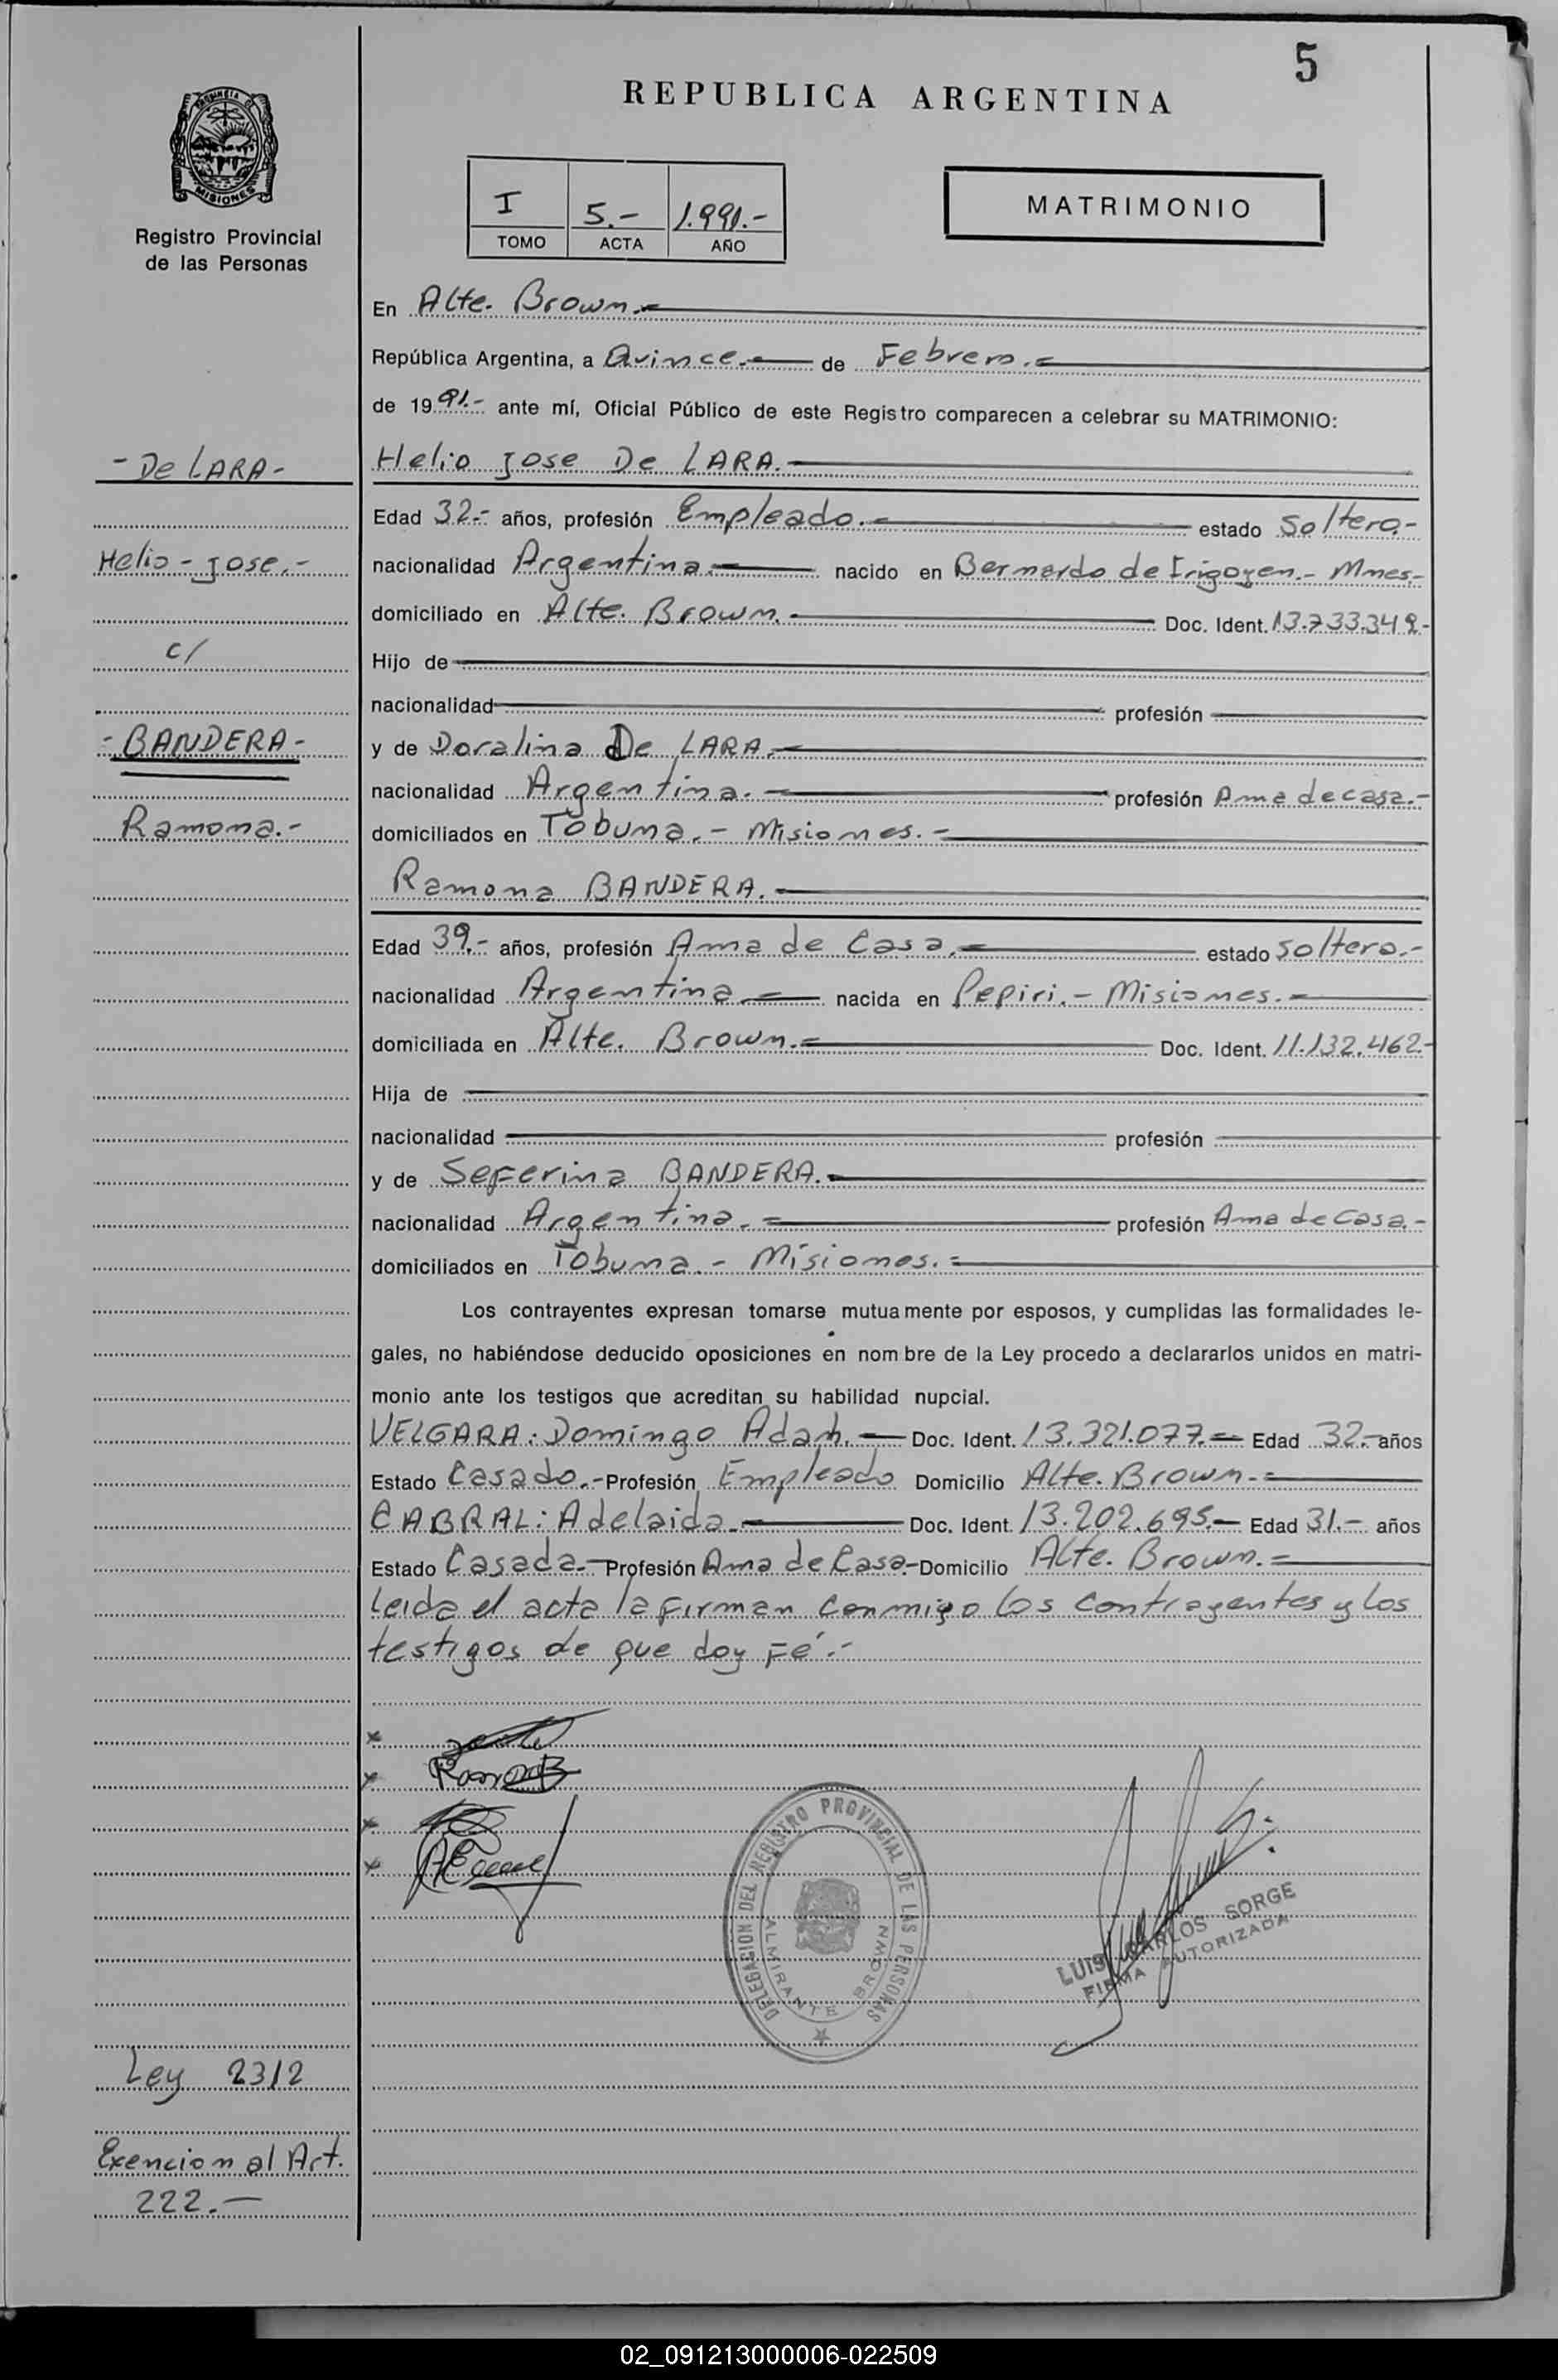 5
REPUBLICA ARGENTINA
PROVINCIA DE
MISIONES
Registro Provincial
de las Personas
I 5.- 1.991.-
TOMO ACTA AÑO
MATRIMONIO
En Alte. Brown.-
República Argentina, a Quince.- de Febrero.-
de 1991.- ante mí, Oficial Público de este Registro comparecen a celebrar su MATRIMONIO:
- De LARA-
Helio Jose De LARA.-
Edad 32.- años, profesión Empleado.- estado Soltero.-
Helio - Jose.-
nacionalidad Argentina.- nacido en Bernardo de Irigoyen.- Mnes.-
domiciliado en Alte. Brown.- Doc. Ident. 13.733.349.-
c/
Hijo de
nacionalidad profesión
- BANDERA -
y de Doralina De LARA.-
nacionalidad Argentina.- profesión Ama de casa.-
Ramona.-
domiciliados en Tobuna.- Misiones.-
Ramona BANDERA.-
Edad 39.- años, profesión Ama de Casa.- estado soltera.-
nacionalidad Argentina.- nacida en Pepiri.- Misiones.-
domiciliada en Alte. Brown.- Doc. Ident. 11.132.462.-
Hija de
nacionalidad profesión
y de Seferina BANDERA.-
nacionalidad Argentina.- profesión Ama de Casa.-
domiciliados en Tobuna.- Misiones.-
Los contrayentes expresan tomarse mutuamente por esposos, y cumplidas las formalidades le-
gales, no habiéndose deducido oposiciones en nombre de la Ley procedo a declararlos unidos en matri-
monio ante los testigos que acreditan su habilidad nupcial.
VELGARA: Domingo Adan.- Doc. Ident. 13.321.077.- Edad 32.- años
Estado Casado.- Profesión Empleado Domicilio Alte. Brown.-
CABRAL: Adelaida.- Doc. Ident. 13.202.695.- Edad 31.- años
Estado Casada.- Profesión Ama de Casa.- Domicilio Alte. Brown.-
Leida el acta la firman conmigo los contrayentes y los
testigos de que doy Fé.-
DELEGACION DEL REGISTRO PROVINCIAL DE LAS PERSONAS
ALMIRANTE BROWN
LUIS CARLOS SORGE
FIRMA AUTORIZADA
Ley 2312
Exencion al Art.
222.-
02_091213000006-022509